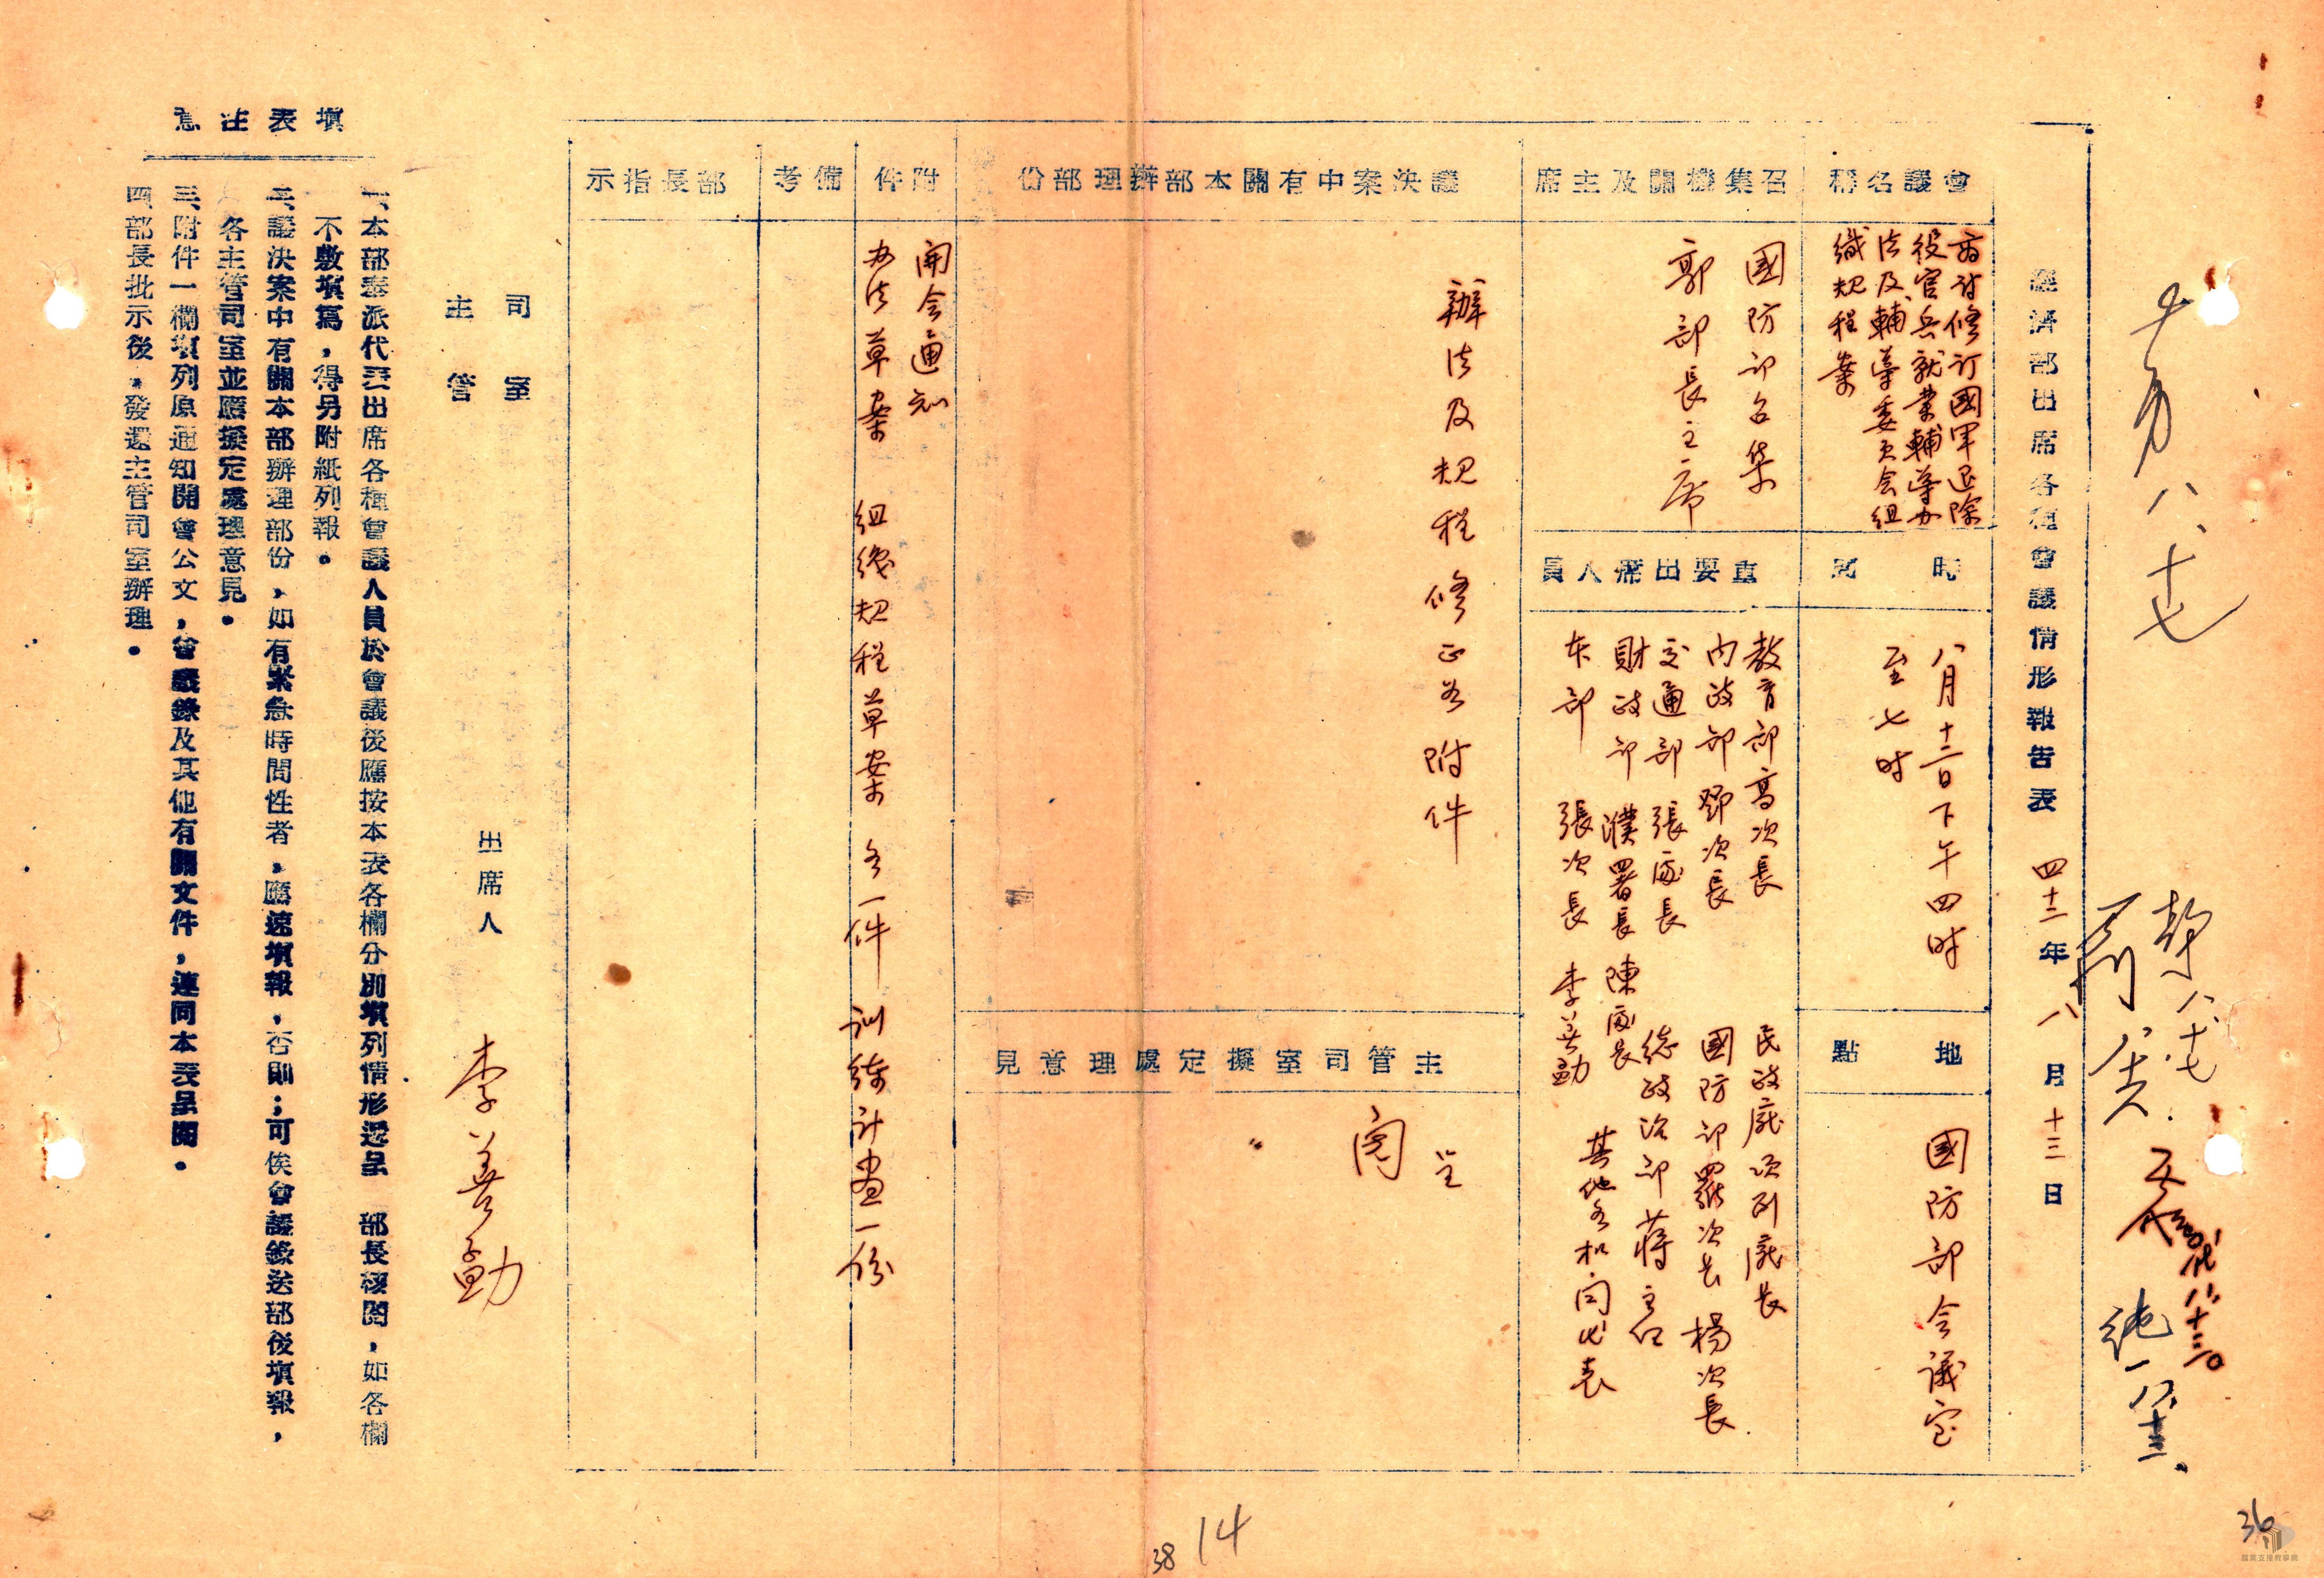 經濟部出席各種會議情形報告表 四十二年八月十三日
會議名稱
商討修訂國軍退除
役官兵就業輔導办
法及輔導委员会組
織規程案
時間
八月十二日下午四时
至七时
地點
國防部会議室
召集機關及主席
國防部召集
郭部長主席
重要出席人員
教育部高次長
內政部鄧次長
交通部張處長
財政部濮署長 陳處長
本部 張次長 李善勳
民政廳項副廳長
國防部羅次長 楊次長
總政治部蔣主任
其他各机関代表
議決案中有關本部辦理部份
辦法及規程修正如附件
主管司室擬定處理意見
呈
閱
附件
開会通知
办法草案 組織規程草案各一件 訓練計畫一份
備考
部長指示
司室
主管
出席人 李善勳
填表注意
一、本部奉派代表出席各種會議人員於會議後應按本表各欄分別填列情形逕呈 部長核閱，如各欄
不敷填寫，得另附紙列報。
二、議決案中有關本部辦理部份，如有緊急時間性者，應速填報，否則；可俟會議錄送部後填報，
各主管司室並應擬定處理意見。
三、附件一欄填列原通知開會公文，會議錄及其他有關文件，連同本表呈閱。
四、部長批示後，發還主管司室辦理。
八、十七
八、十七
純一
14
38
36
檔案支援教學網